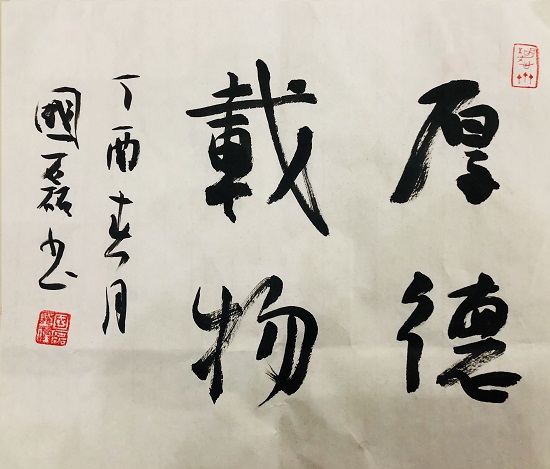 厚德
載物
丁酉春月
國磊书